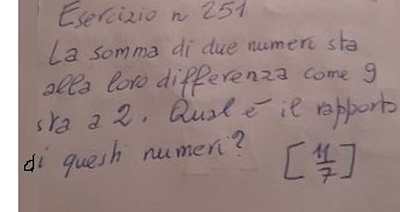 Esercizio n 251
La somma di due numeri sta
alla loro differenza come 9
sta a 2. Qual è il rapporto
di questi numeri? [11/7]